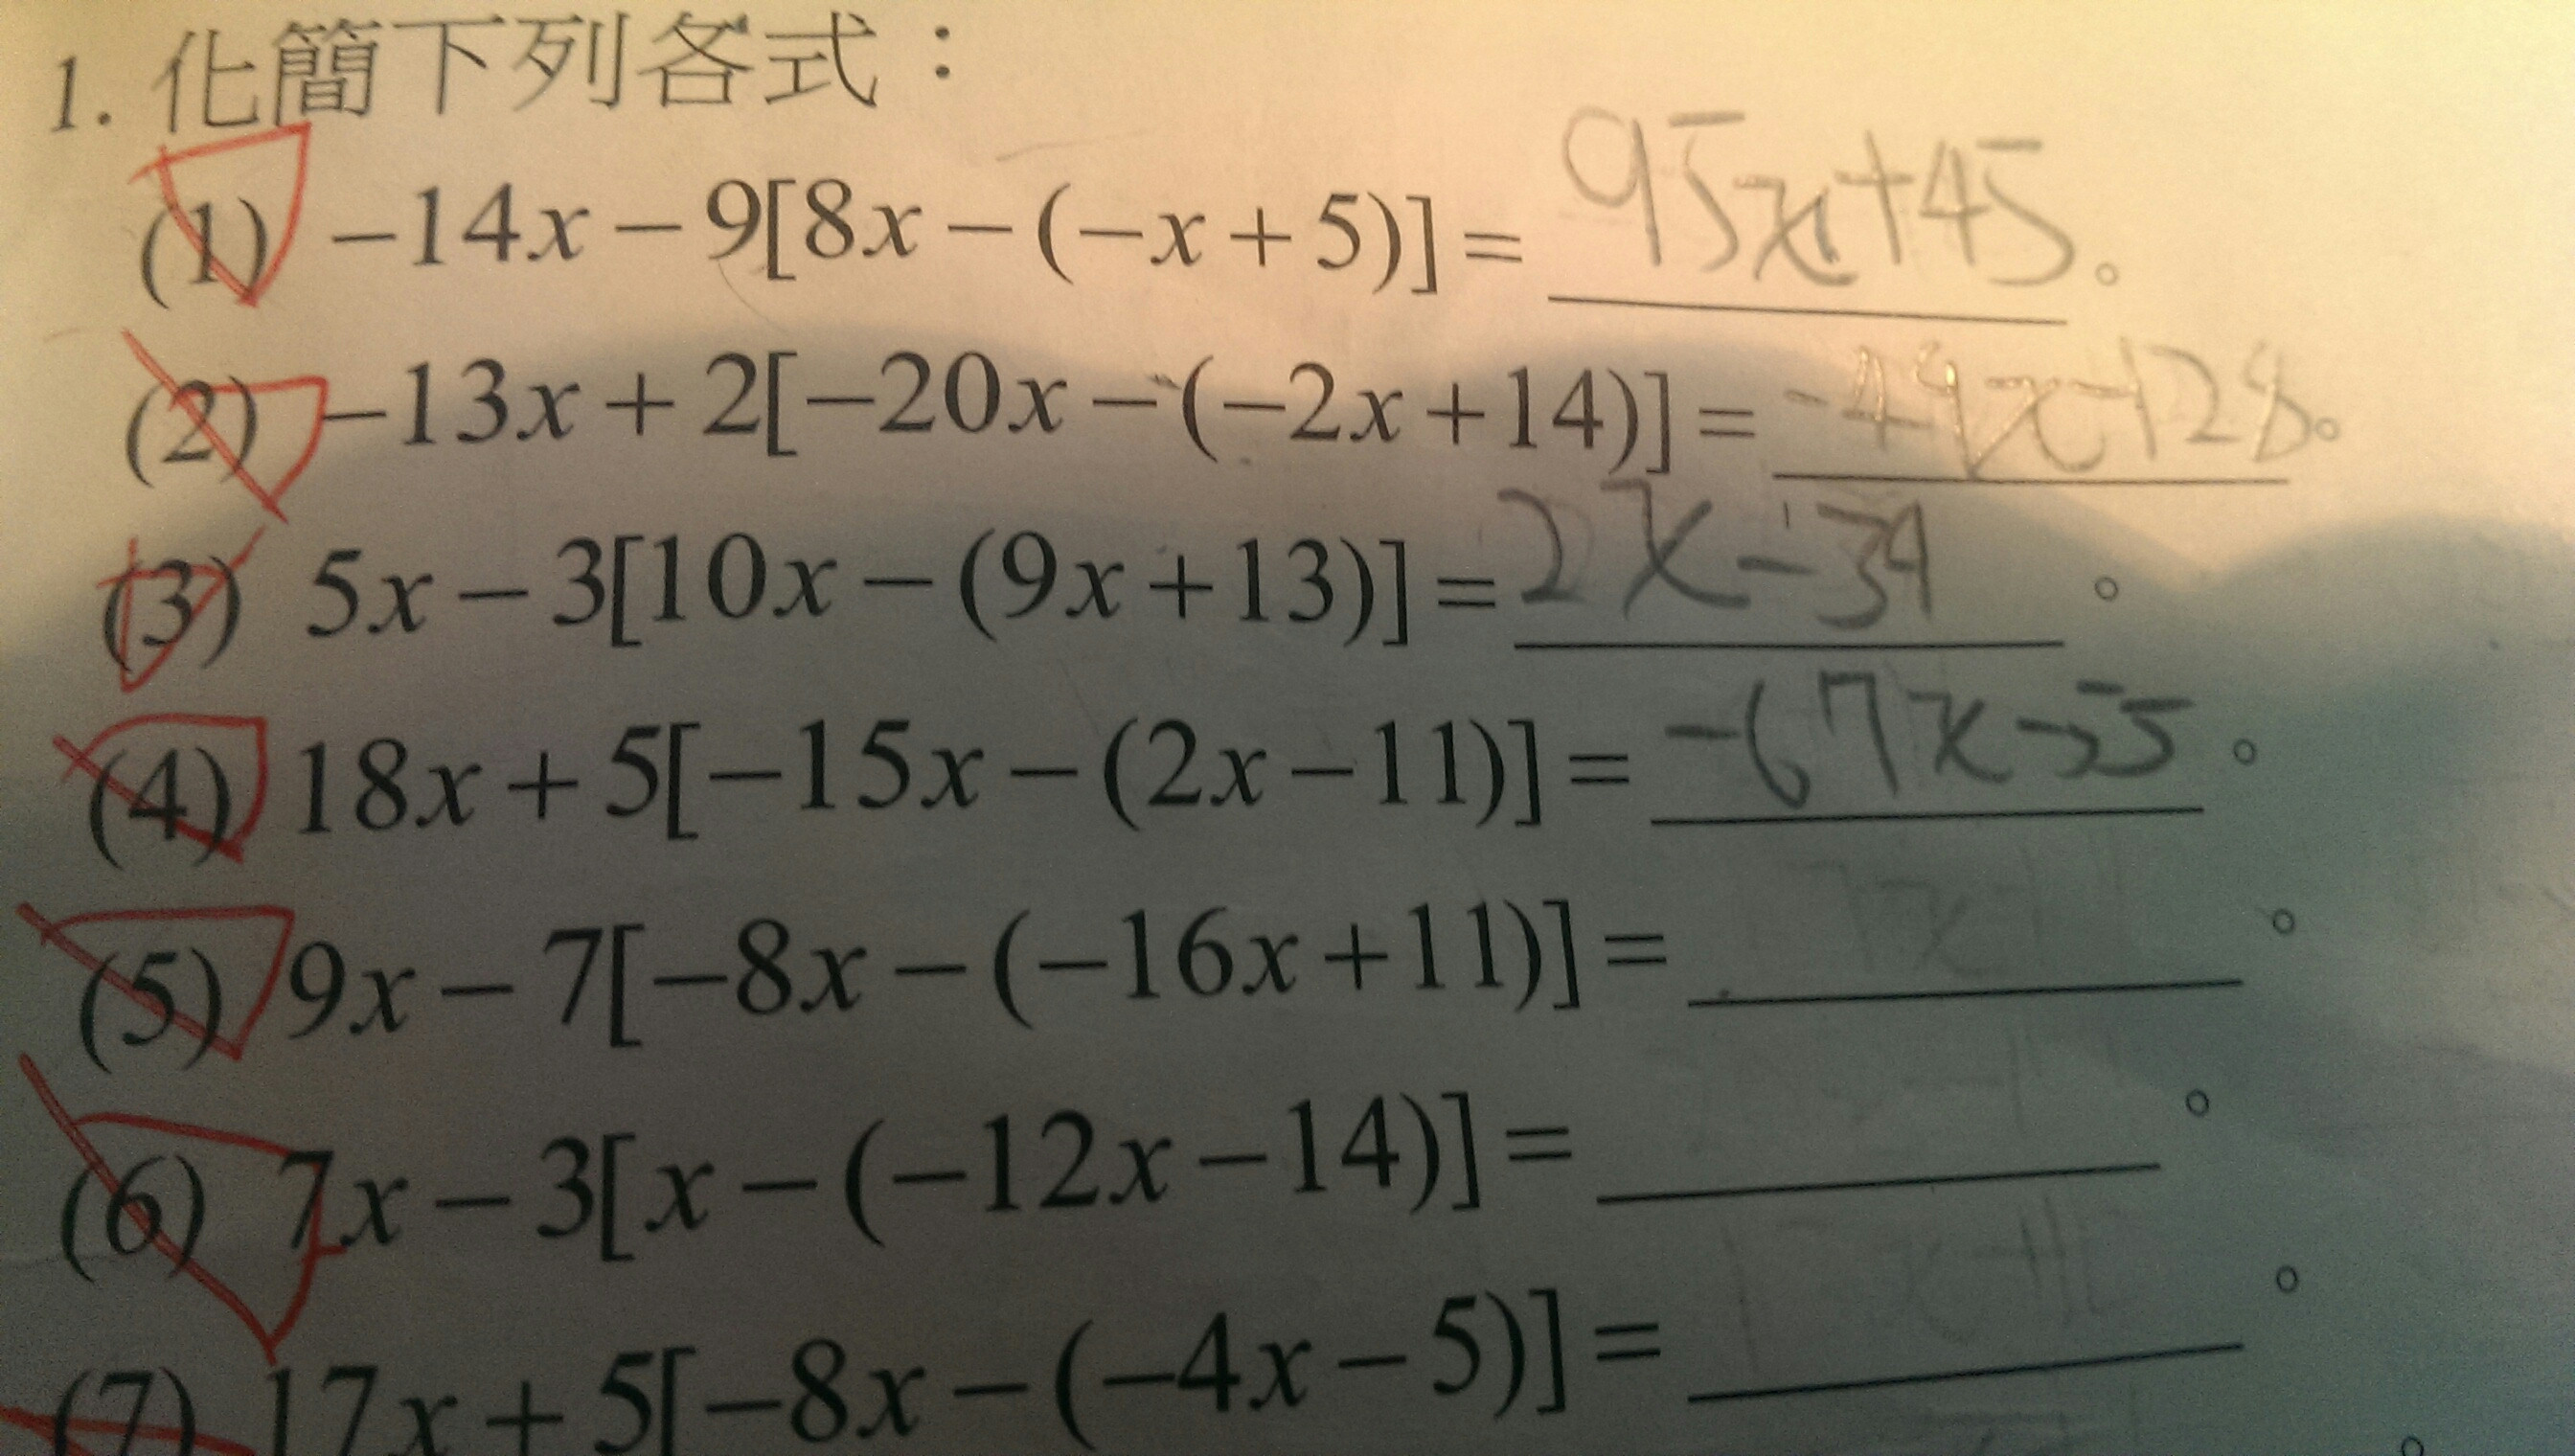 1. 化簡下列各式：
(1) −14x − 9[8x − (−x + 5)] = 95x+45。
(2) −13x + 2[−20x − (−2x + 14)] = -49x+128。
(3) 5x − 3[10x − (9x + 13)] = 2x-34。
(4) 18x + 5[−15x − (2x − 11)] = -67x-55。
(5) 9x − 7[−8x − (−16x + 11)] = 。
(6) 7x − 3[x − (−12x − 14)] = 。
(7) 17x + 5[−8x − (−4x − 5)] = 。